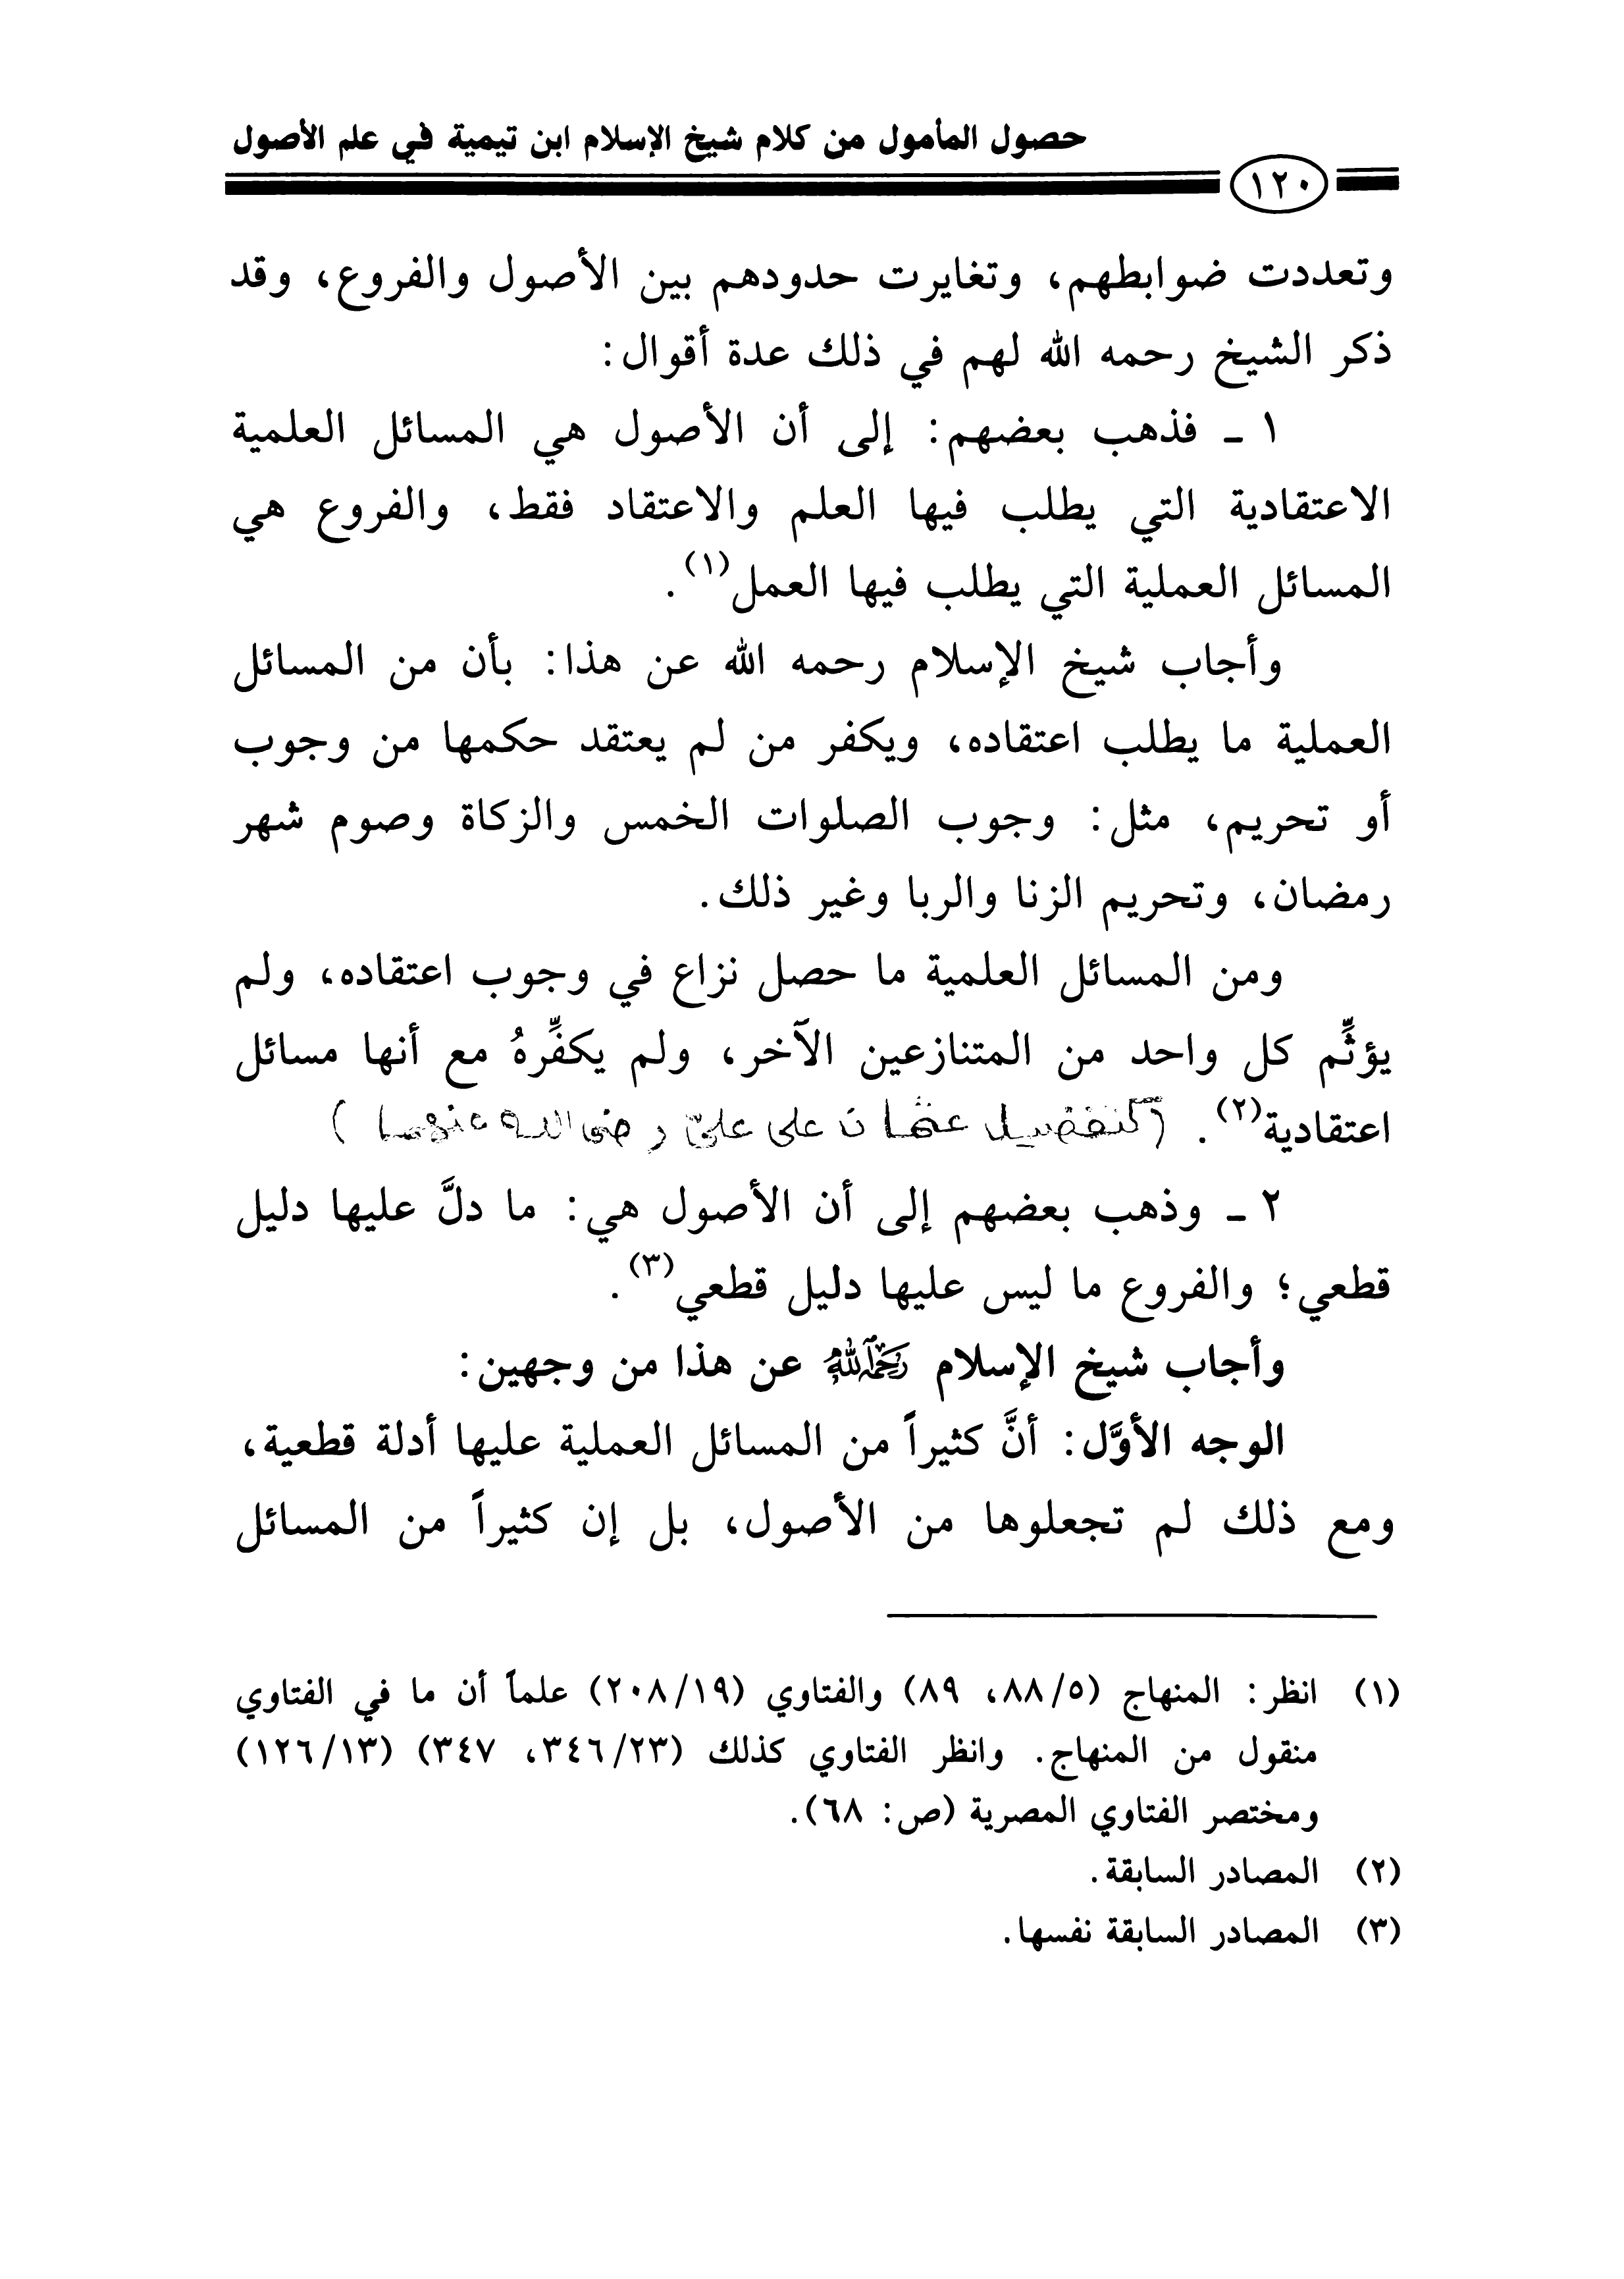 حصول المأمول من كلام شيخ الإسلام ابن تيمية في علم الأصول
١٢٠
وتعددت ضوابطهم، وتغايرت حدودهم بين الأصول والفروع، وقد
ذكر الشيخ رحمه الله لهم في ذلك عدة أقوال:
١ ـ فذهب بعضهم: إلى أن الأصول هي المسائل العلمية
الاعتقادية التي يطلب فيها العلم والاعتقاد فقط، والفروع هي
المسائل العملية التي يطلب فيها العمل(١).
وأجاب شيخ الإسلام رحمه الله عن هذا: بأن من المسائل
العملية ما يطلب اعتقاده، ويكفر من لم يعتقد حكمها من وجوب
أو تحريم، مثل: وجوب الصلوات الخمس والزكاة وصوم شهر
رمضان، وتحريم الزنا والربا وغير ذلك.
ومن المسائل العلمية ما حصل نزاع في وجوب اعتقاده، ولم
يؤثِّم كل واحد من المتنازعين الآخر، ولم يكفِّرهُ مع أنها مسائل
اعتقادية(٢). (كتفضيل عثمان على عليّ رضي الله عنهما)
٢ ـ وذهب بعضهم إلى أن الأصول هي: ما دلَّ عليها دليل
قطعي؛ والفروع ما ليس عليها دليل قطعي(٣).
وأجاب شيخ الإسلام رحمه الله عن هذا من وجهين:
الوجه الأوَّل: أنَّ كثيراً من المسائل العملية عليها أدلة قطعية،
ومع ذلك لم تجعلوها من الأصول، بل إن كثيراً من المسائل
(١) انظر: المنهاج (٨٨/٥، ٨٩) والفتاوي (٢٠٨/١٩) علماً أن ما في الفتاوي
منقول من المنهاج. وانظر الفتاوي كذلك (٣٤٦/٢٣، ٣٤٧) (١٢٦/١٣)
ومختصر الفتاوي المصرية (ص: ٦٨).
(٢) المصادر السابقة.
(٣) المصادر السابقة نفسها.